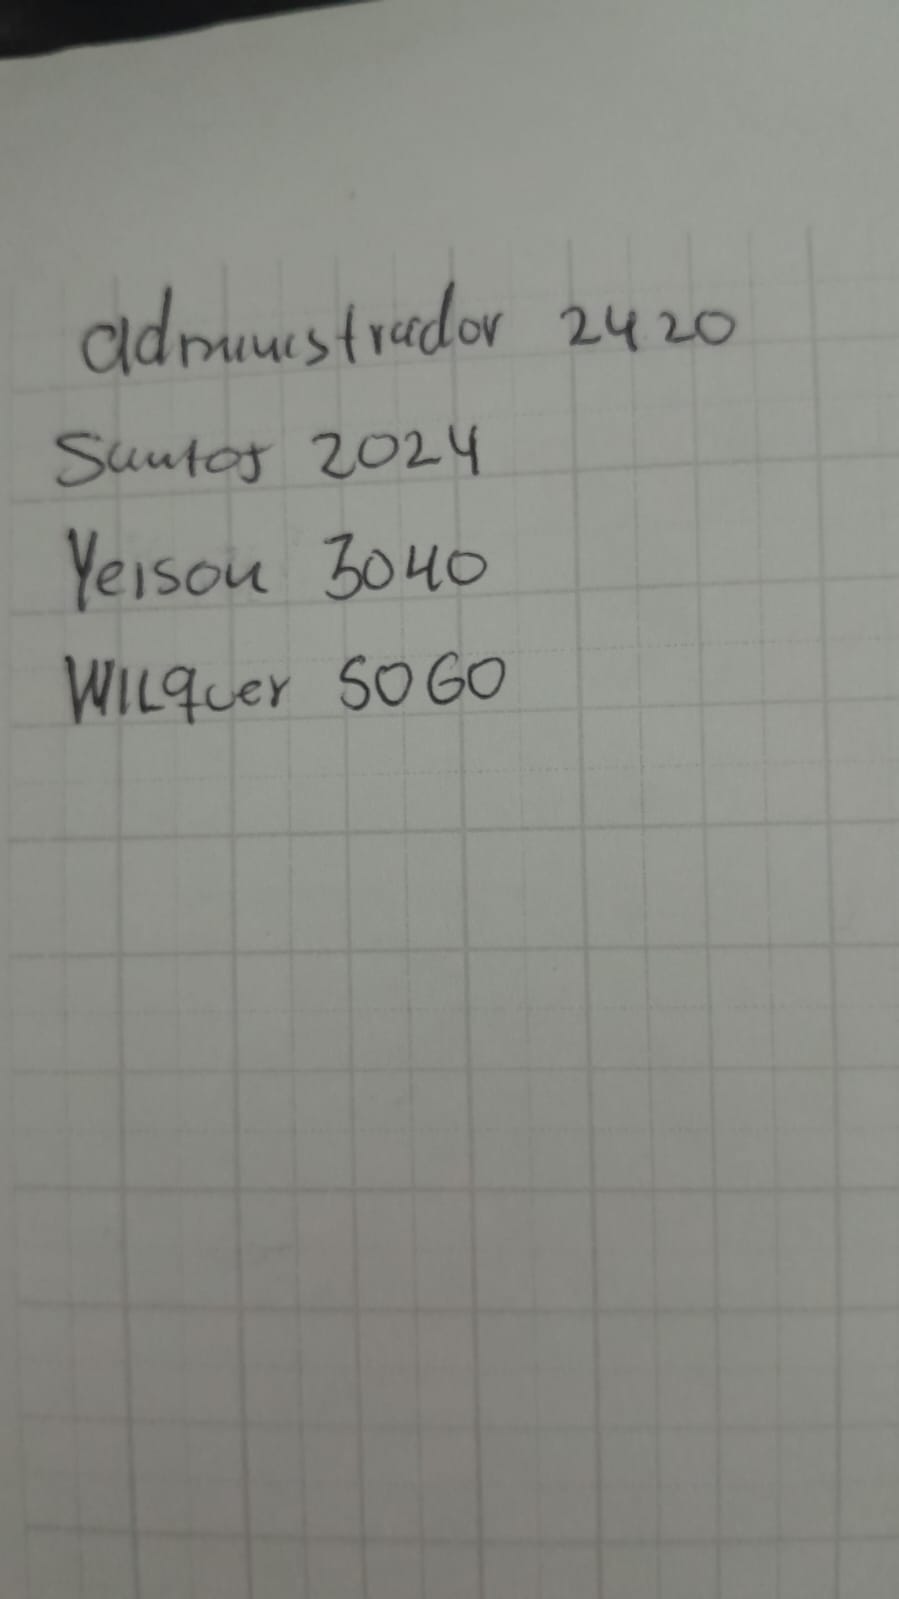 administrador 2420
Santos 2024
Yeison 3040
Wilquer 5060